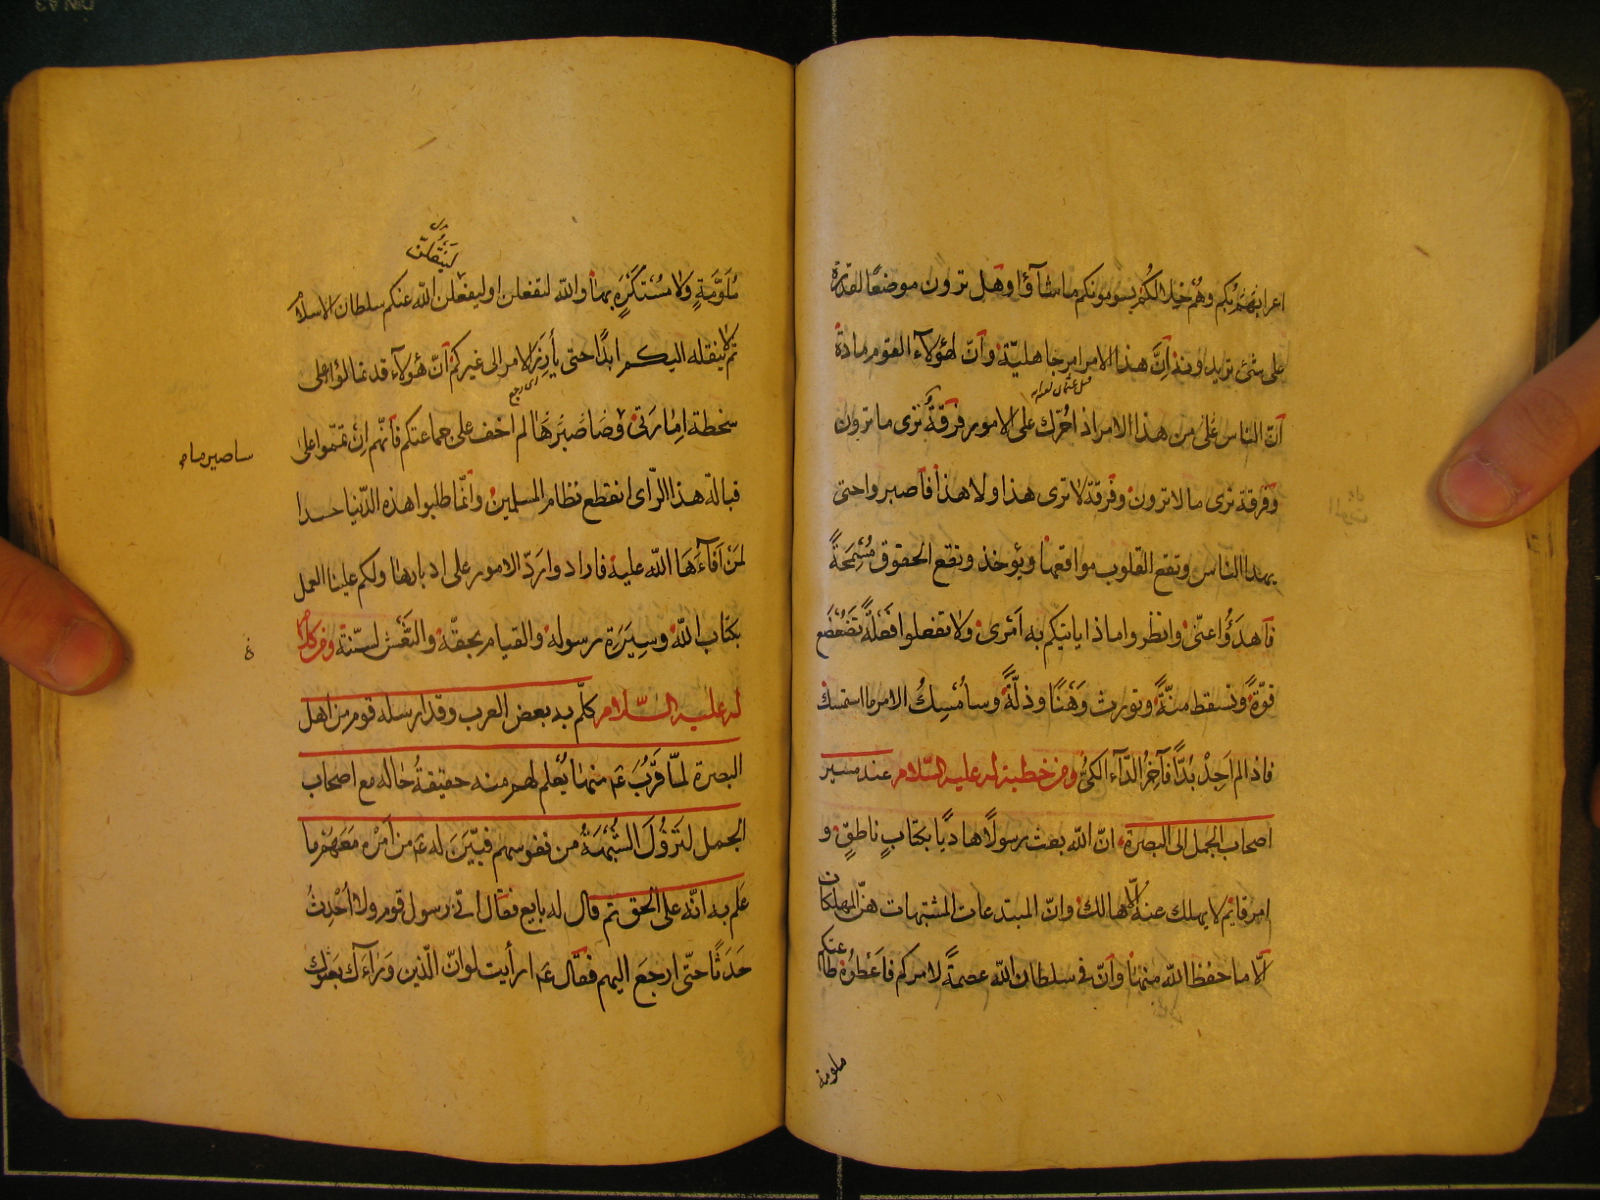 اعرابهم بكم وهُم خِلالكُم يسومونكم ما شاؤا وهل ترون موضعًا لقدرة
على شئ تريدونه اِنَّ هذا الامر امر جاهليّة وَانّ لهؤلاء القوم مادة
قبل عثمان
انّ الناس عَلى من هذا الامر اذ احُرّك على الامور فرقةٌ ترى ما ترون
وَفرقة ترى ما لا ترون وفرقة لا ترى هذا ولا هذا فاصبروا حتى
يهدا الناس وتقع القلوب مواقعها ويؤخذ وتقع الحقوق مُسْمَحَةً
فَاهدَؤُا عنّى وانظروا ماذا ياتيكم به اَمْرى وَلا تفعلوا فَعْلَةً تُضَعْضِع
قوّةً وتسقط منّةً وتورث وَهْنًا وذلّةً وسأمْسِكُ الامر ما استمسك
فاذا لم اَجِدْ بُدّاً فآخِرُ الدّآء الكىّ ومن خطبة له عليه السّلام عند مسير
اصحاب الجمل الى البصرة انّ الله بعث رسولاً هاديًا بكتابٍ ناطقٍ و
امر قايم لا يهلك عنه الّا هالك وانّ المبتدعات المشتبهات هنّ المهلكات
الّا ما حفظ الله منها وانّ فى سلطان الله عصمةً لامركم فاَعْطُوْهُ طاعتكم
ملومة
لَيَنْقُلَنّ
مُلَوَّمَةٍ وَلا مُسْتَكْرَهٍ بها والله لتفعلن او ليفعلن الله عنكم سلطان الاسلام
ثم لا ينقله اليكم ابدًا حتى يأرِزَ الامر الى غيركم اَنّ هؤلآء قد تمالؤا على
اى رجع
سخطة اِمارتى وَ صَاصَبِرُ مَا لم اخف على جماعتكم فانّهم اِن تمّموا على
ساصبر ما م
فيالة هذا الرّأى انقطع نظام المسلمين وانّما طلبوا هذه الدّنيا حسدا
لمَنْ اَفاءَهَا الله عليه فارادوا رَدّ الامور على ادبارها ولكم علينا العمل
بكتاب الله وسِيرة رسوله والقيام بحقّه والنّعْش لسنّته ومن كلام
له عليه السّلام كلّم به بعض العرب وقد ارسله قوم من اهل
البصرة لمّا قَرُبَ عم منها يُعلم لهم منه حقيقةُ حَاله مع اصحاب
الجمل لتَزُوْلَ الشّبهَةُ من نفوسهم فبيّنَ له عم من اَمْره مَعَهُمْ ما
عَلم به انّه على الحق ثم قال له بايع فقال انّى رسول قوم ولا اُحْدِثُ
حَدَثًا حتّى ارجعَ اليهم فقال عم ارأيت لو انّ الّذين وَرَاءَك بعَثوك